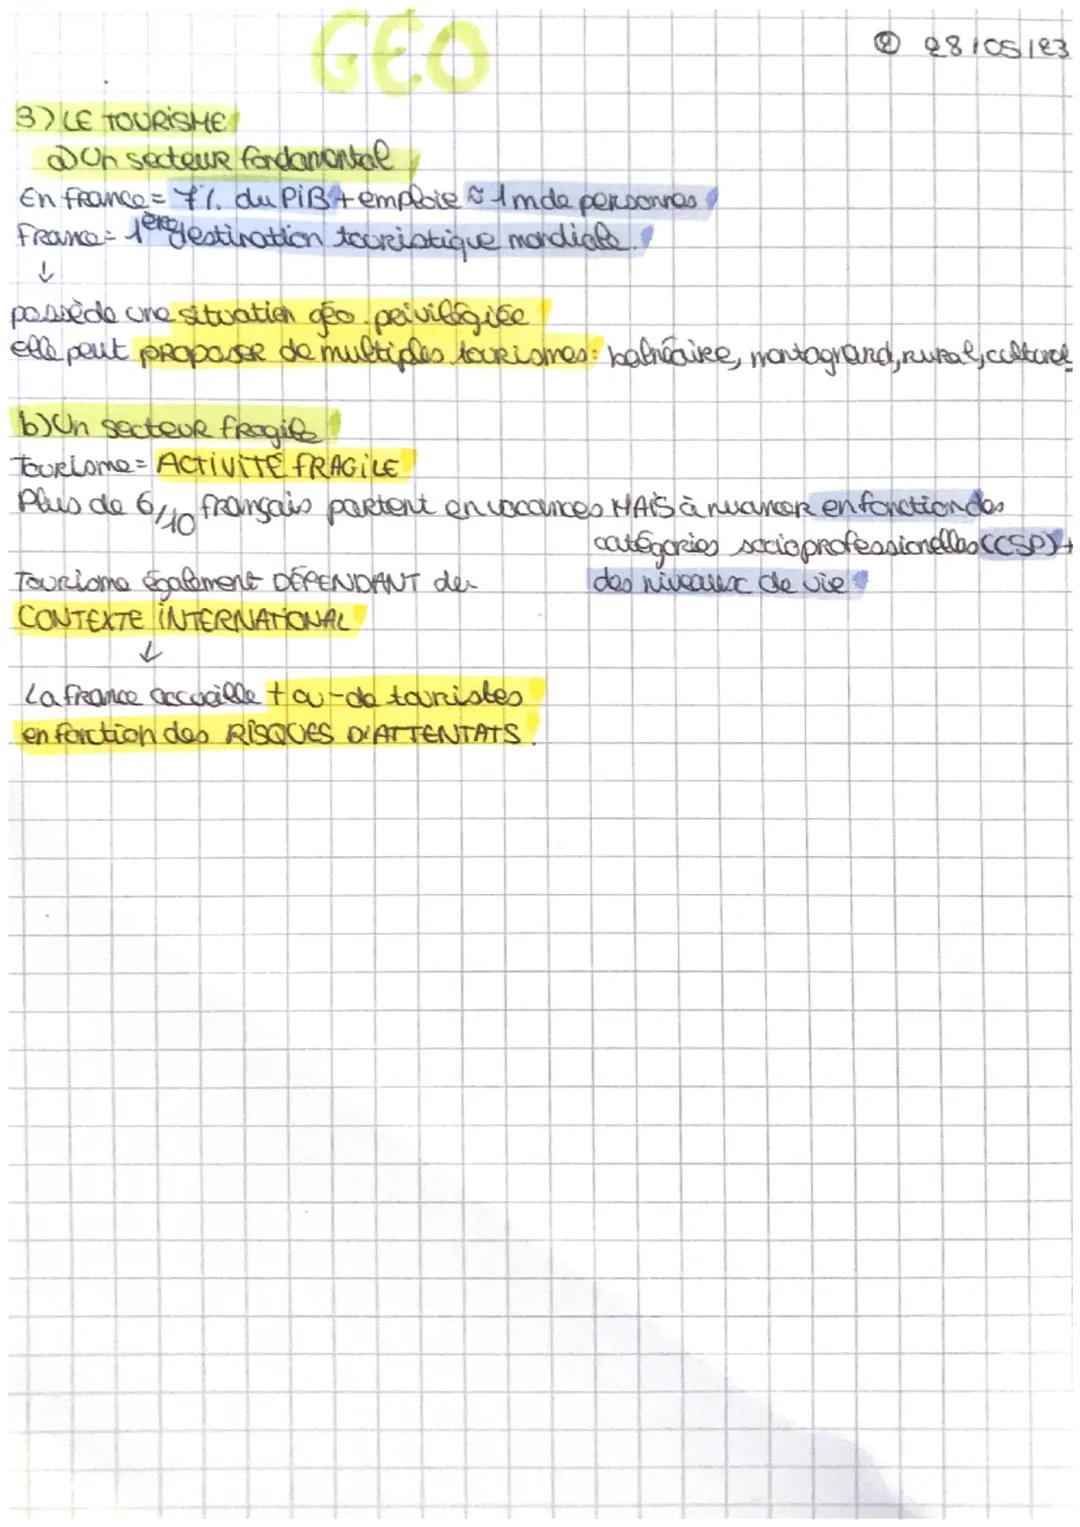 GÉO
② 28/05/23
3) LE TOURISME
a) Un secteur fondamental
En france = 7% du PiB + emploie ≈ 1 m de personnes
France = 1ère destination touristique mondiale.
↓
possède une situation géo. privilégiée
elle peut PROPOSER de multiples tourismes : balnéaire, montagnard, rural, culturel
b) Un secteur fragile
Tourisme = ACTIVITÉ FRAGILE
Plus de 6/10 français partent en vacances MAiS à nuancer en fonction des
catégories socioprofessionelles (CSP) +
des niveaux de vie
Tourisme également DÉPENDANT du
CONTEXTE INTERNATIONAL
↓
La france accueille + ou - de touristes
en fonction des RISQUES D'ATTENTATS.